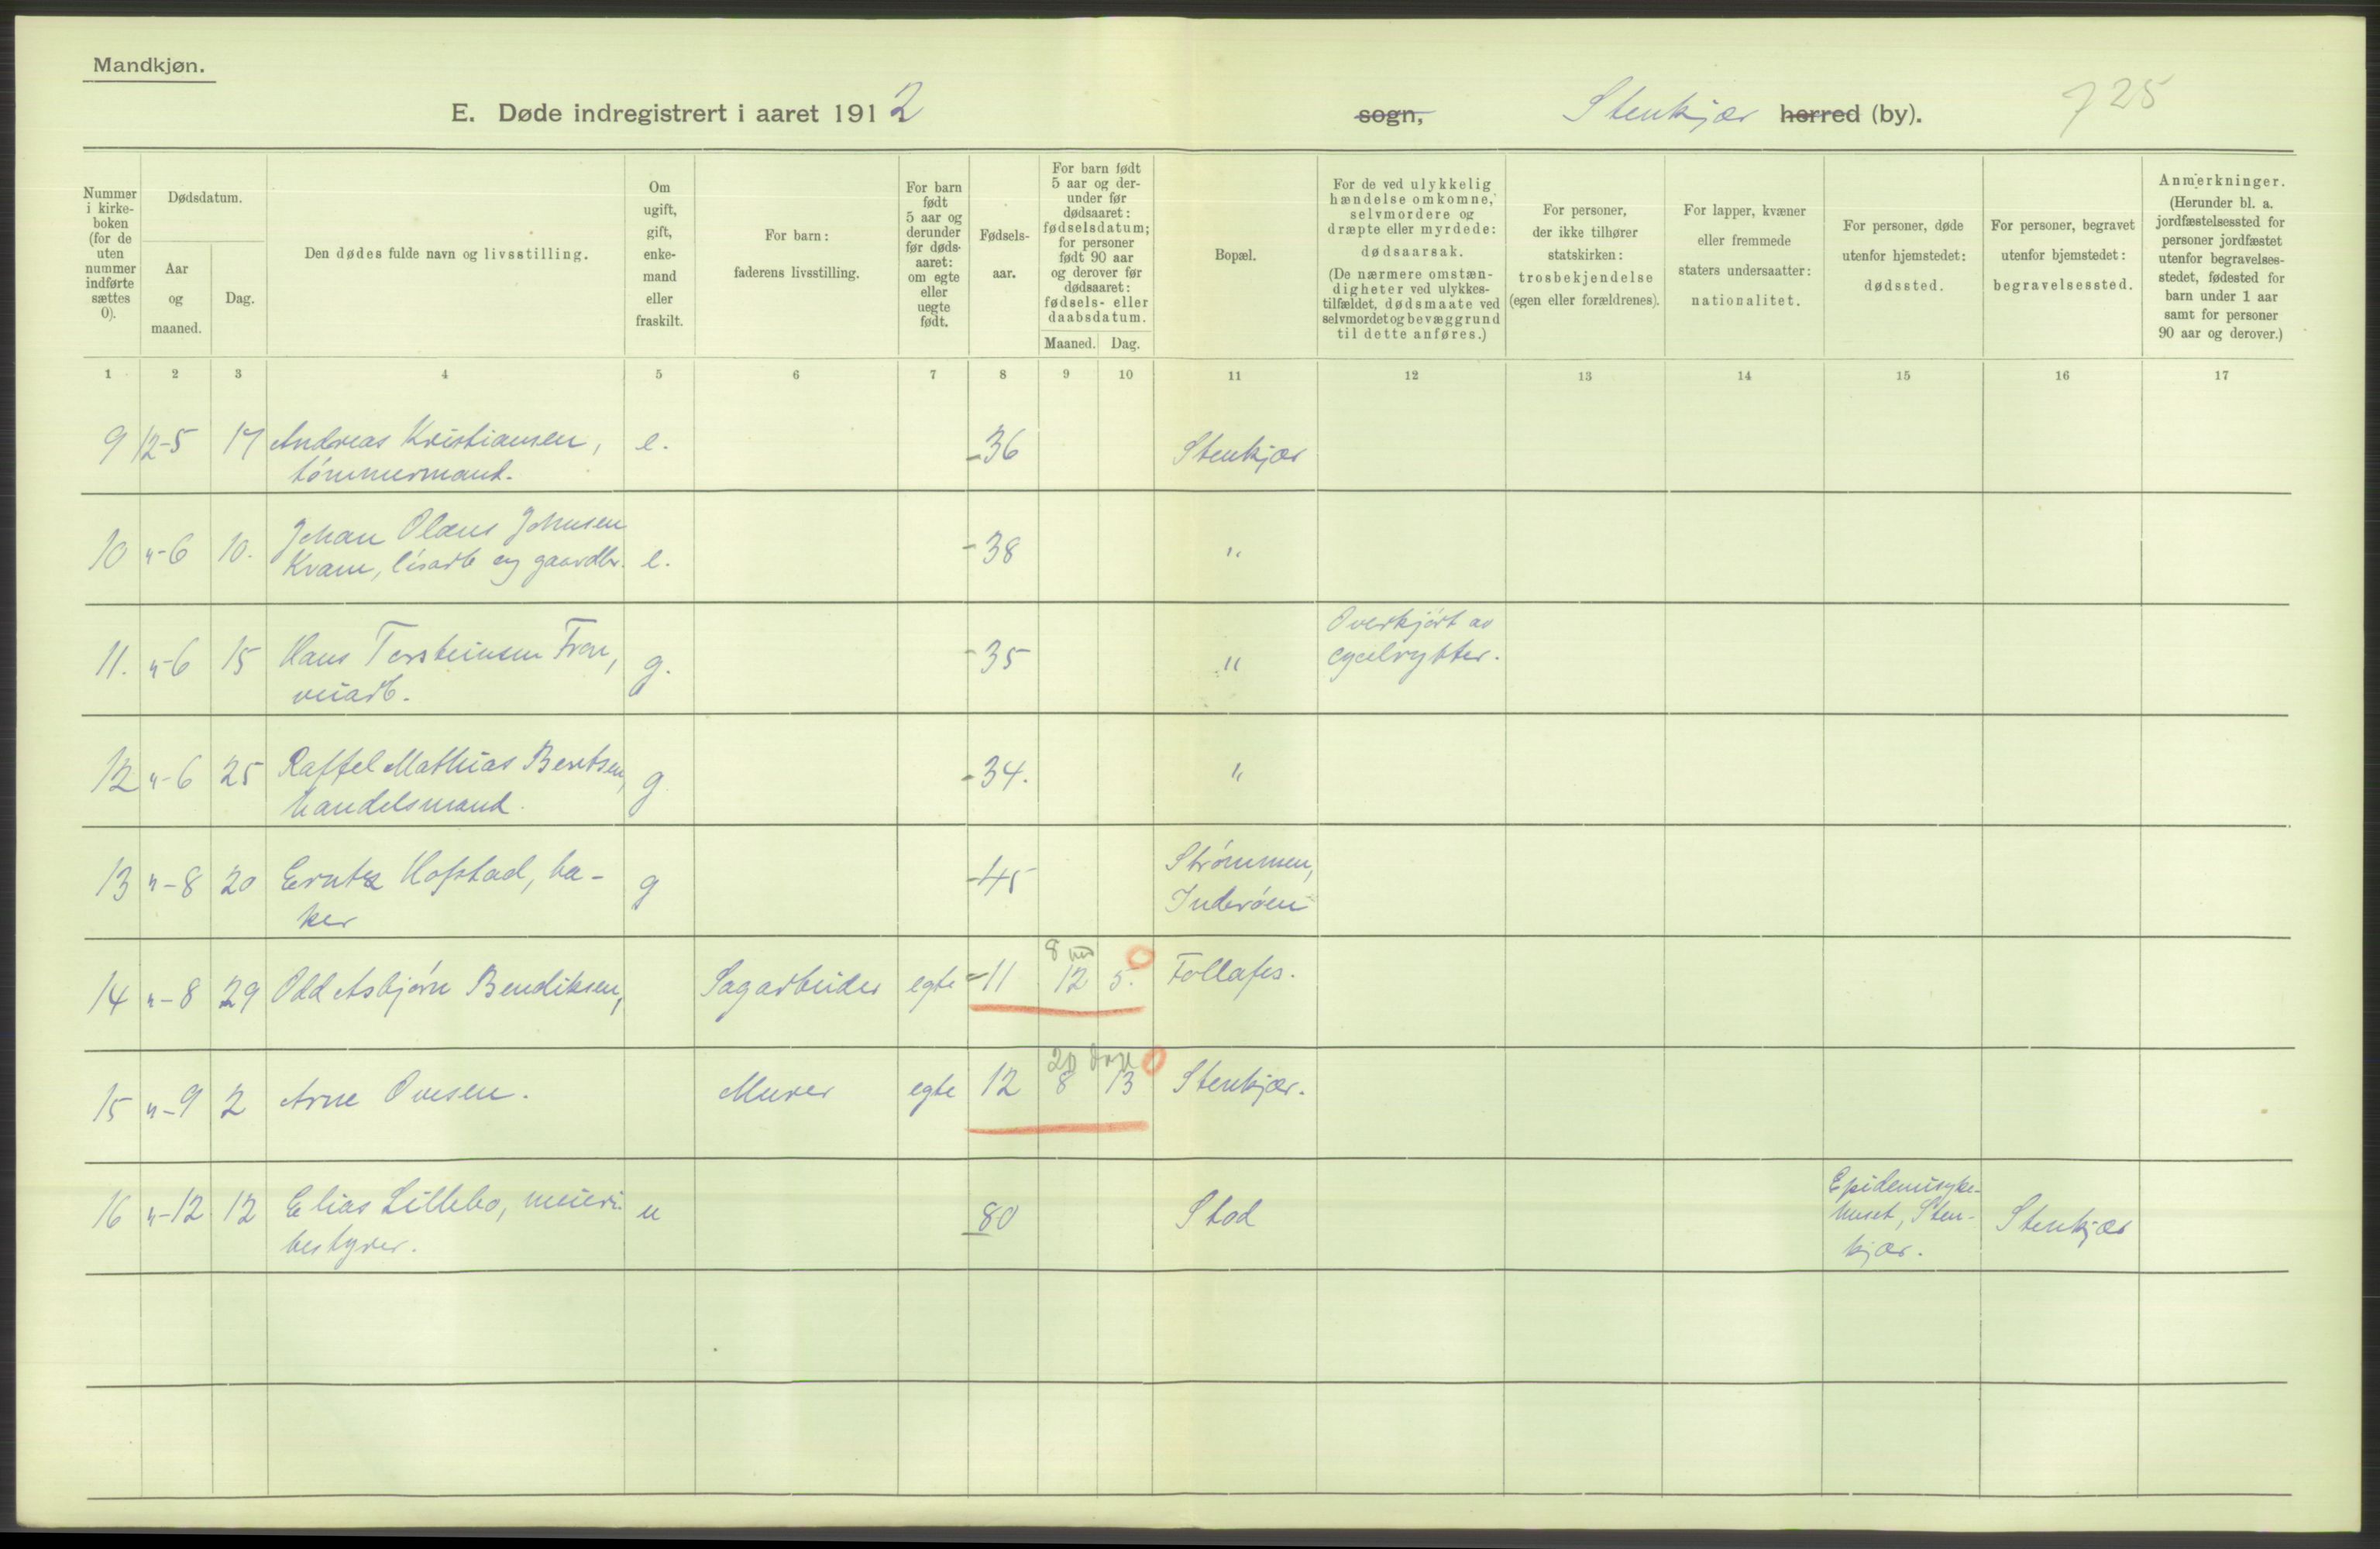 Mandkjøn.
E. Døde indregistrert i aaret 1912 sogn, Stenkjær herred (by). 725
Nummer i kirke-boken (for de uten nummer indførte sættes 0).
Dødsdatum.
Aar og maaned.
Dag.
Den dødes fulde navn og livsstilling.
Om ugift, gift, enke-mand eller fraskilt.
For barn: faderens livsstilling.
For barn født 5 aar og derunder før døds-aaret: om egte eller uegte født.
Fødsels-aar.
For barn født 5 aar og der-under før dødsaaret: fødselsdatum; for personer født 90 aar og derover før dødsaaret: fødsels- eller daabsdatum.
Maaned. Dag.
Bopæl.
For de ved ulykkelig hændelse omkomne, selvmordere og dræpte eller myrdede: dødsaarsak. (De nærmere omstæn-digheter ved ulykkes-tilfældet, dødsmaate ved selvmordet og bevæggrund til dette anføres.)
For personer, der ikke tilhører statskirken: trosbekjendelse (egen eller forældrenes).
For lapper, kvæner eller fremmede staters undersaatter: nationalitet.
For personer, døde utenfor hjemstedet: dødssted.
For personer, begravet utenfor hjemstedet: begravelsessted.
Anmerkninger. (Herunder bl. a. jordfæstelsessted for personer jordfæstet utenfor begravelses-stedet, fødested for barn under 1 aar samt for personer 90 aar og derover.)
1 2 3 4 5 6 7 8 9 10 11 12 13 14 15 16 17
9 12-5 17 Andreas Kristiansen, e. -36 Stenkjær
tømmermand.
10 "-6 10. Johan Olaus Johnsen
Kvam, og gaardbr. e. -38 "
11. "-6 15 Hans Torsteinsen Fron, g. -35 " Overkjørt av
veiarb. cyclerytter.
12 "-6 25 Raffel Mathias Bentsen, g -34. "
handelsmand.
13 "-8 20 Hofstad, ba- g -45 Strømmen,
ker Inderøen
8 md 0
14 "-8 29 Odd Asbjørn Bendiksen, Sagarbeider egte -11 12 5. Follafos.
20 0
15 "-9 2 Arne Ovesen. Murer egte 12 8 13 Stenkjær.
16 "-12 12 Elias Lillebo, meieri- u 80 Stod Epidemisyke-
bestyrer. huset, Sten- Stenkjær
kjær.